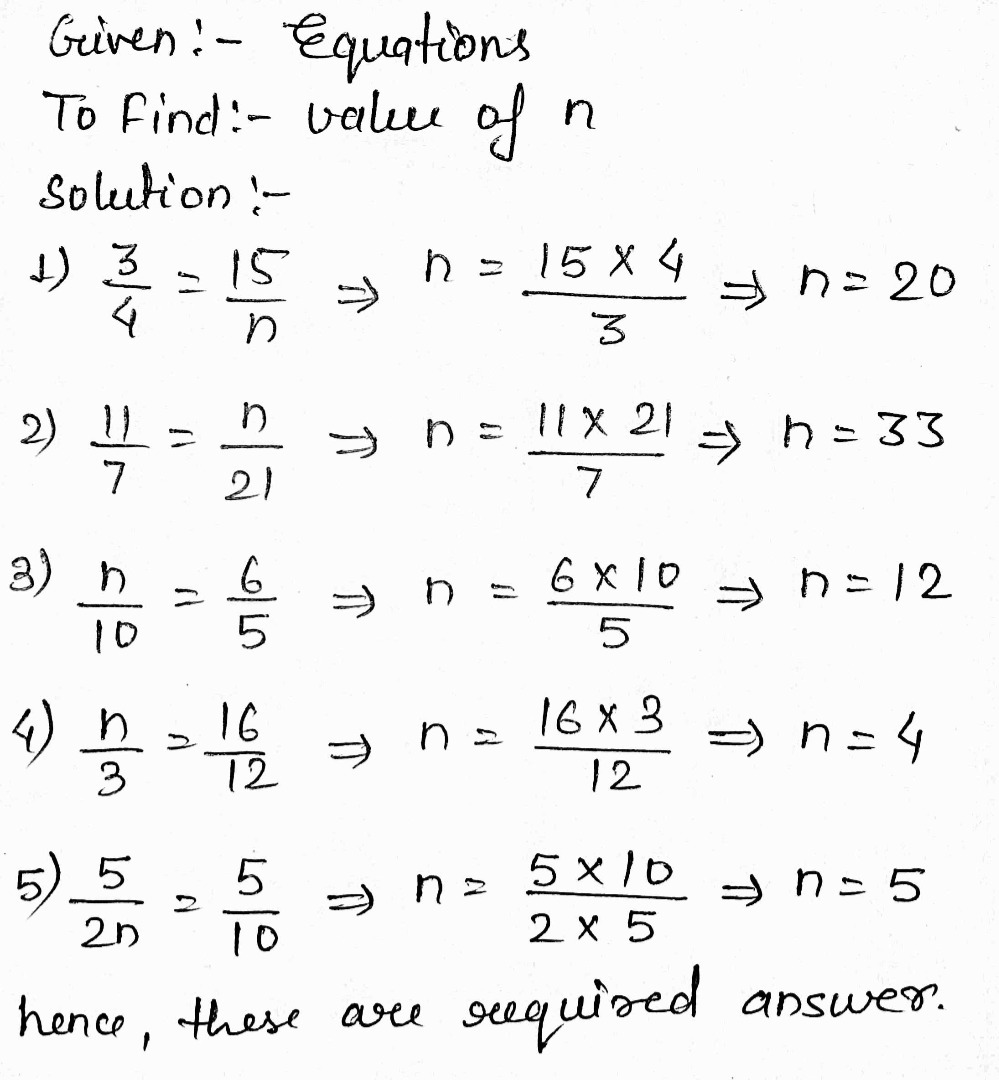 Given :- Equations
To Find :- value of n
Solution :-
1) 3/4 = 15/n ⇒ n = (15 × 4)/3 ⇒ n = 20
2) 11/7 = n/21 ⇒ n = (11 × 21)/7 ⇒ n = 33
3) n/10 = 6/5 ⇒ n = (6 × 10)/5 ⇒ n = 12
4) n/3 = 16/12 ⇒ n = (16 × 3)/12 ⇒ n = 4
5) 5/2n = 5/10 ⇒ n = (5 × 10)/(2 × 5) ⇒ n = 5
hence, these are required answer.